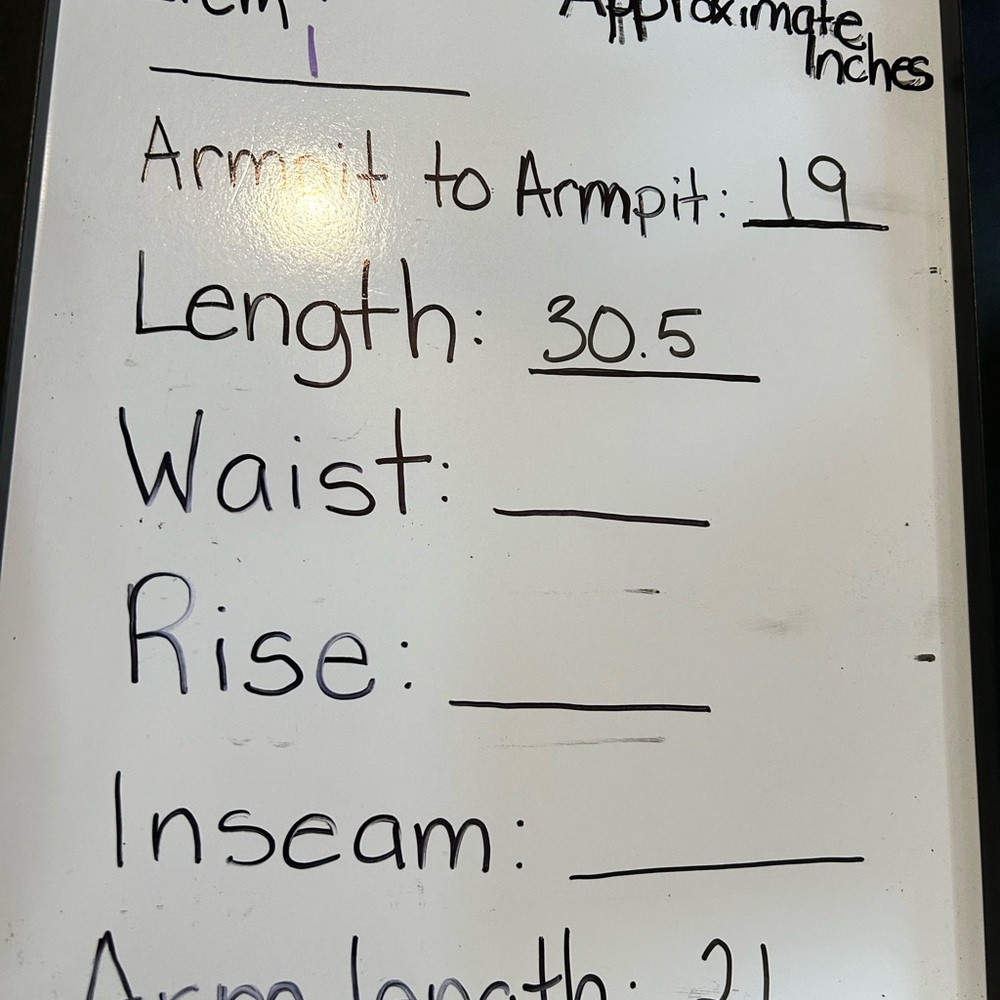 Item
Approximate
Inches
1
Armpit to Armpit: 19
Length: 30.5
Waist:
Rise:
Inseam:
Arm length: 21